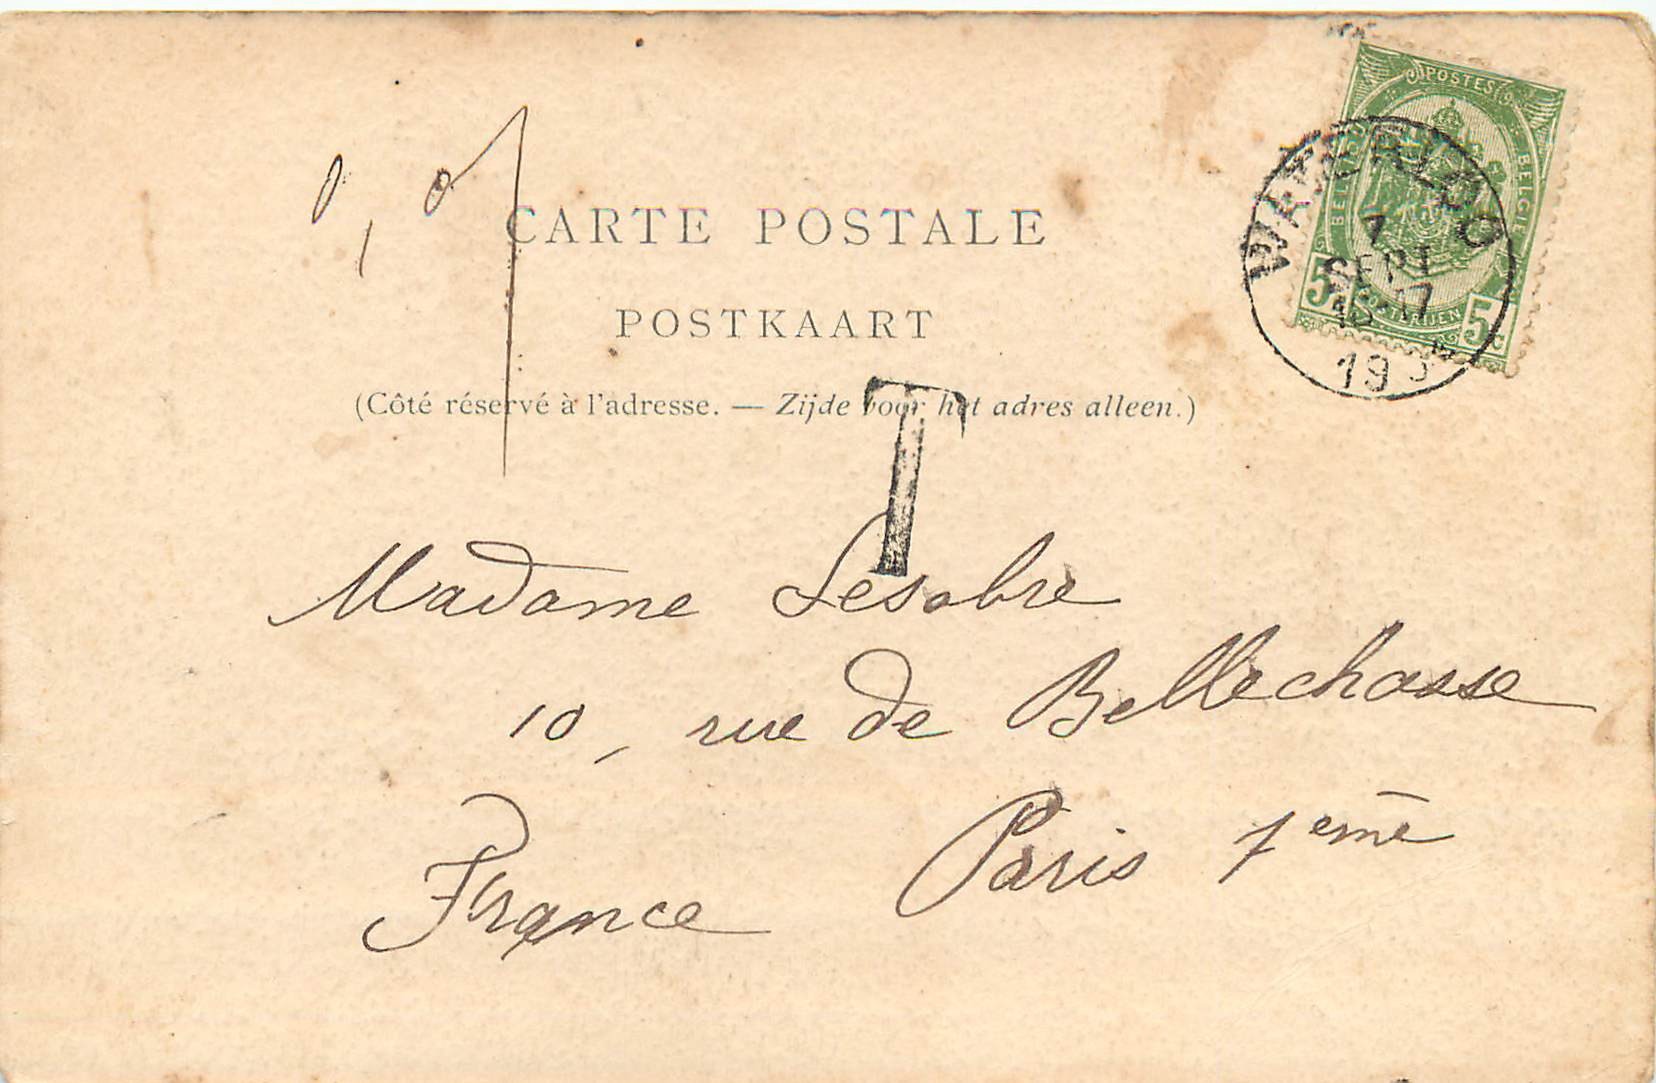 CARTE POSTALE
POSTKAART
(Côté réservé à l'adresse. — Zijde voor het adres alleen.)
POSTES
BELGIQUE
BELGIË
POSTERIJEN
5c 5c
WATERLOO
SEPT
19
T
Madame Lesobre
10, rue de Bellechasse
Paris 7eme
France